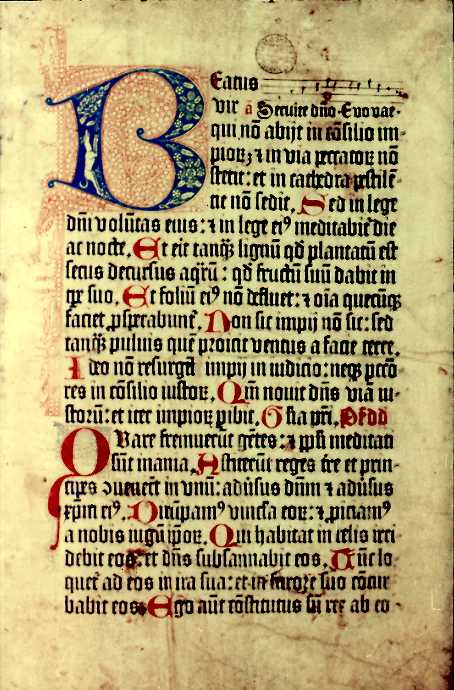 Eatus
vir a Seruite dño. Euouae.
qui nõ abijt in cõsilio im-
pioꝝ ⁊ in via peccatoꝝ nõ
stetit: et in cathedra pestilẽ-
tie nõ sedit. Sed in lege
dñi volũtas eius: ⁊ in lege eiꝰ meditabit̃ die
ac nocte. Et erit tanq̃ꝫ lignũ qđ plantatũ est
secus decursus aq̃rũ: qđ fructũ suũ dabit in
tp̃e suo. Et foliũ eiꝰ nõ defluet: ⁊ oĩa quecũqꝫ
faciet ꝓsperabunt̃. Non sic impij nõ sic: sed
tanq̃ꝫ puluis quẽ proicit ventus a facie terre.
Ideo nõ resurgẽt impij in iudicio: neqꝫ pctõ-
res in cõsilio iustoꝝ. Qm̃ nouit dñs viã iu-
storũ: et iter impioꝝ ꝑibit. Glĩa pr̃i.
B Uare fremuerũt gẽtes: ⁊ ppl̃i meditati
Q sũt inania. Astiterũt reges tr̃e et prin-
cipes ↄuenerũt in vnũ: aduersus dñm ⁊ aduersus
xp̃m eiꝰ. Dirũpamꝰ vincl̃a eoꝝ: ⁊ ꝓiciamꝰ
a nobis iugũ ip̃oꝝ. Qui habitat in celis irri-
debit eos: et dñs subsannabit eos. Tũc lo-
quet̃ ad eos in ira sua: et in furore suo cõtur-
babit eos. Ego aũt cõstitutus sũ rex ab eo